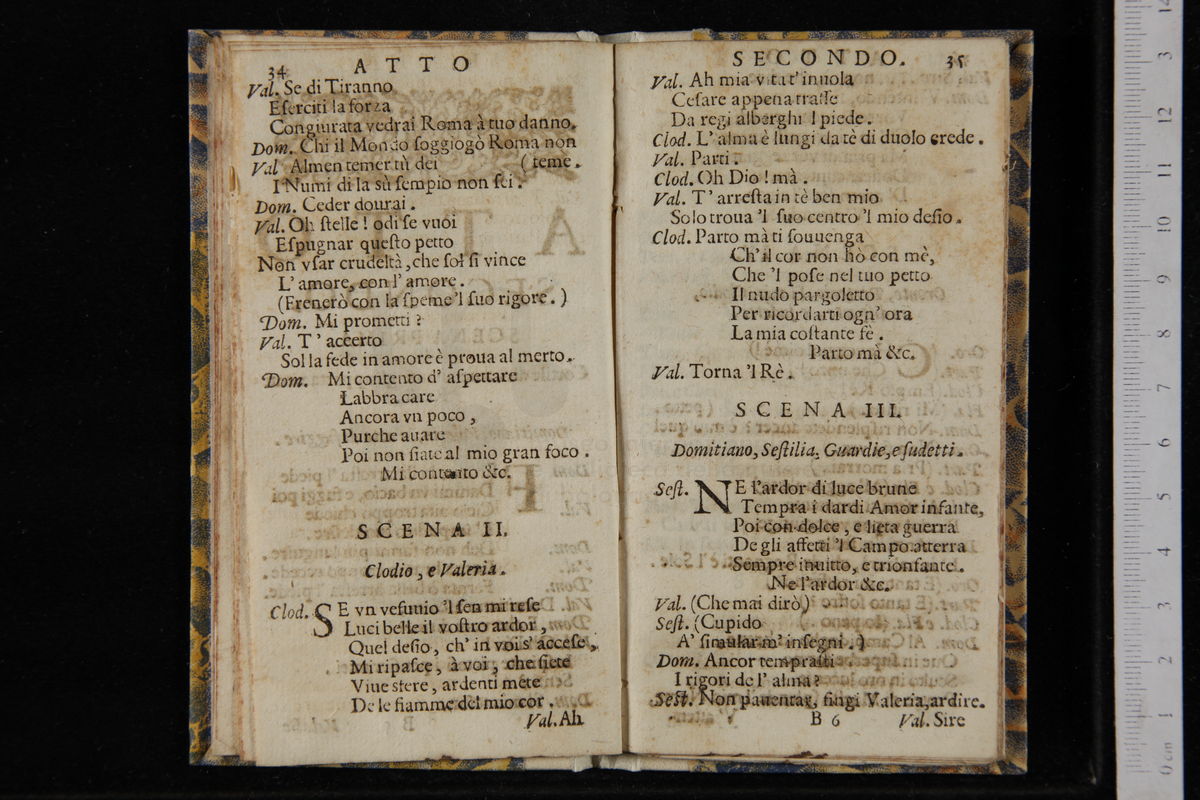 34 ATTO
Val. Se di Tiranno
Eſerciti la forza
Congiurata vedrai Roma à tuo danno.
Dom. Chi il Mondo ſoggiogò Roma non
Val Almen temer tù dei (teme.
I Numi di la sù ſempio non ſei.
Dom. Ceder dourai.
Val. Oh ſtelle! odi ſe vuoi
Eſpugnar queſto petto
Non vſar crudeltà, che ſol ſi vince
L'amore, con l'amore.
(Frenerò con la ſpeme 'l ſuo rigore.)
Dom. Mi prometti?
Val. T'accerto
Sol la fede in amore è proua al merto.
Dom. Mi contento d'aſpettare
Labbra care
Ancora vn poco,
Purche auare
Poi non ſiate al mio gran foco.
Mi contento &c.
SCENA II.
Clodio, e Valeria.
Clod. SE vn veſuuio 'l ſen mi reſe
Luci belle il voſtro ardor,
Quel deſio, ch'in voi s'acceſe,
Mi ripaſce, à voi, che ſiete
Viue sfere, ardenti mete
De le fiamme del mio cor.
Val. Ah
SECONDO. 35
Val. Ah mia vita t'inuola
Ceſare appena traſſe
Da regi alberghi 'l piede.
Clod. L'alma è lungi da tè di duolo erede.
Val. Parti.
Clod. Oh Dio! mà.
Val. T'arreſta in tè ben mio
Solo troua 'l ſuo centro 'l mio deſio.
Clod. Parto mà ti ſouuenga
Ch'il cor non hò con mè,
Che 'l poſe nel tuo petto
Il nudo pargoletto
Per ricordarti ogn'ora
La mia coſtante fè.
Parto mà &c.
Val. Torna 'l Rè.
SCENA III.
Domitiano, Seſtilia, Guardie, e ſudetti.
Seſt. NE l'ardor di luce brune
Tempra i dardi Amor infante,
Poi con dolce, e lieta guerra
De gli affetti 'l Campo atterra
Sempre inuitto, e trionfante.
Ne l'ardor &c.
Val. (Che mai dirò)
Seſt. (Cupido
A' ſimular m'inſegni.)
Dom. Ancor tempraſti
I rigori de l'alma?
Seſt. Non pauentar, fingi Valeria, ardire.
B 6 Val. Sire